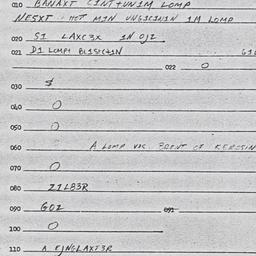 010 BANAXT CINT+UNIM LOMP
NESXT - HOT MIN UNGICININ IM LOMP
020 SI LAXC3X IN OJ2
021 DI LOMPI BLISICTIN
022 O
030 $
040 O
050 O
060 A LOMP VOC BRENT OF KEROSIN
070 O
080 ZILB3R
090 GOZ
091
100 O
110 A EJNGLAXT3R